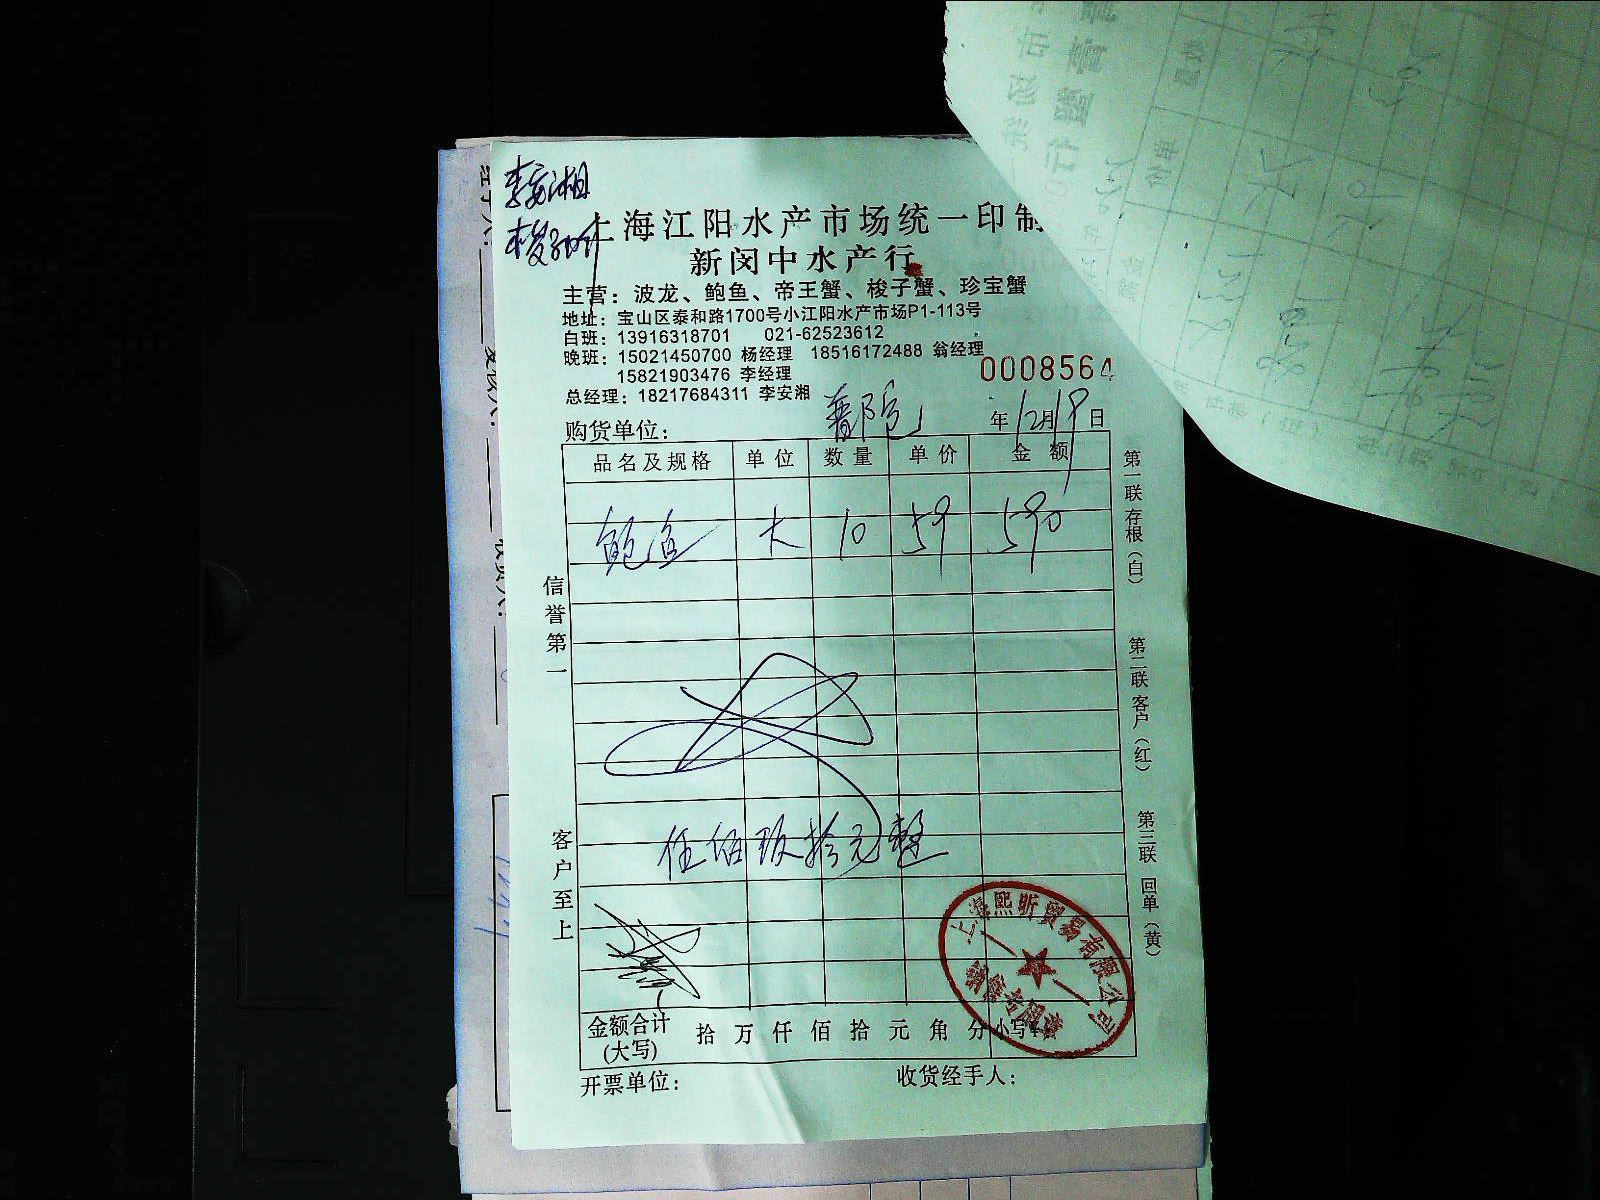 李安湘
上海江阳水产市场统一印制
新闵中水产行
主营：波龙、鲍鱼、帝王蟹、梭子蟹、珍宝蟹
地址：宝山区泰和路1700号小江阳水产市场P1-113号
白班：13916318701 021-62523612
晚班：15021450700 杨经理 18516172488 翁经理
15821903476 李经理
总经理：18217684311 李安湘
0008564
购货单位： 年12月19日
品名及规格 单位 数量 单价 金额
鲍鱼 大 10 59 590
伍佰玖拾元整
金额合计
(大写) 拾万仟佰拾元角分 小写¥
开票单位： 收货经手人：
信誉第一
客户至上
第一联 存根（白）
第二联 客户（红）
第三联 回单（黄）
上海熙昕贸易有限公司
销售专用章